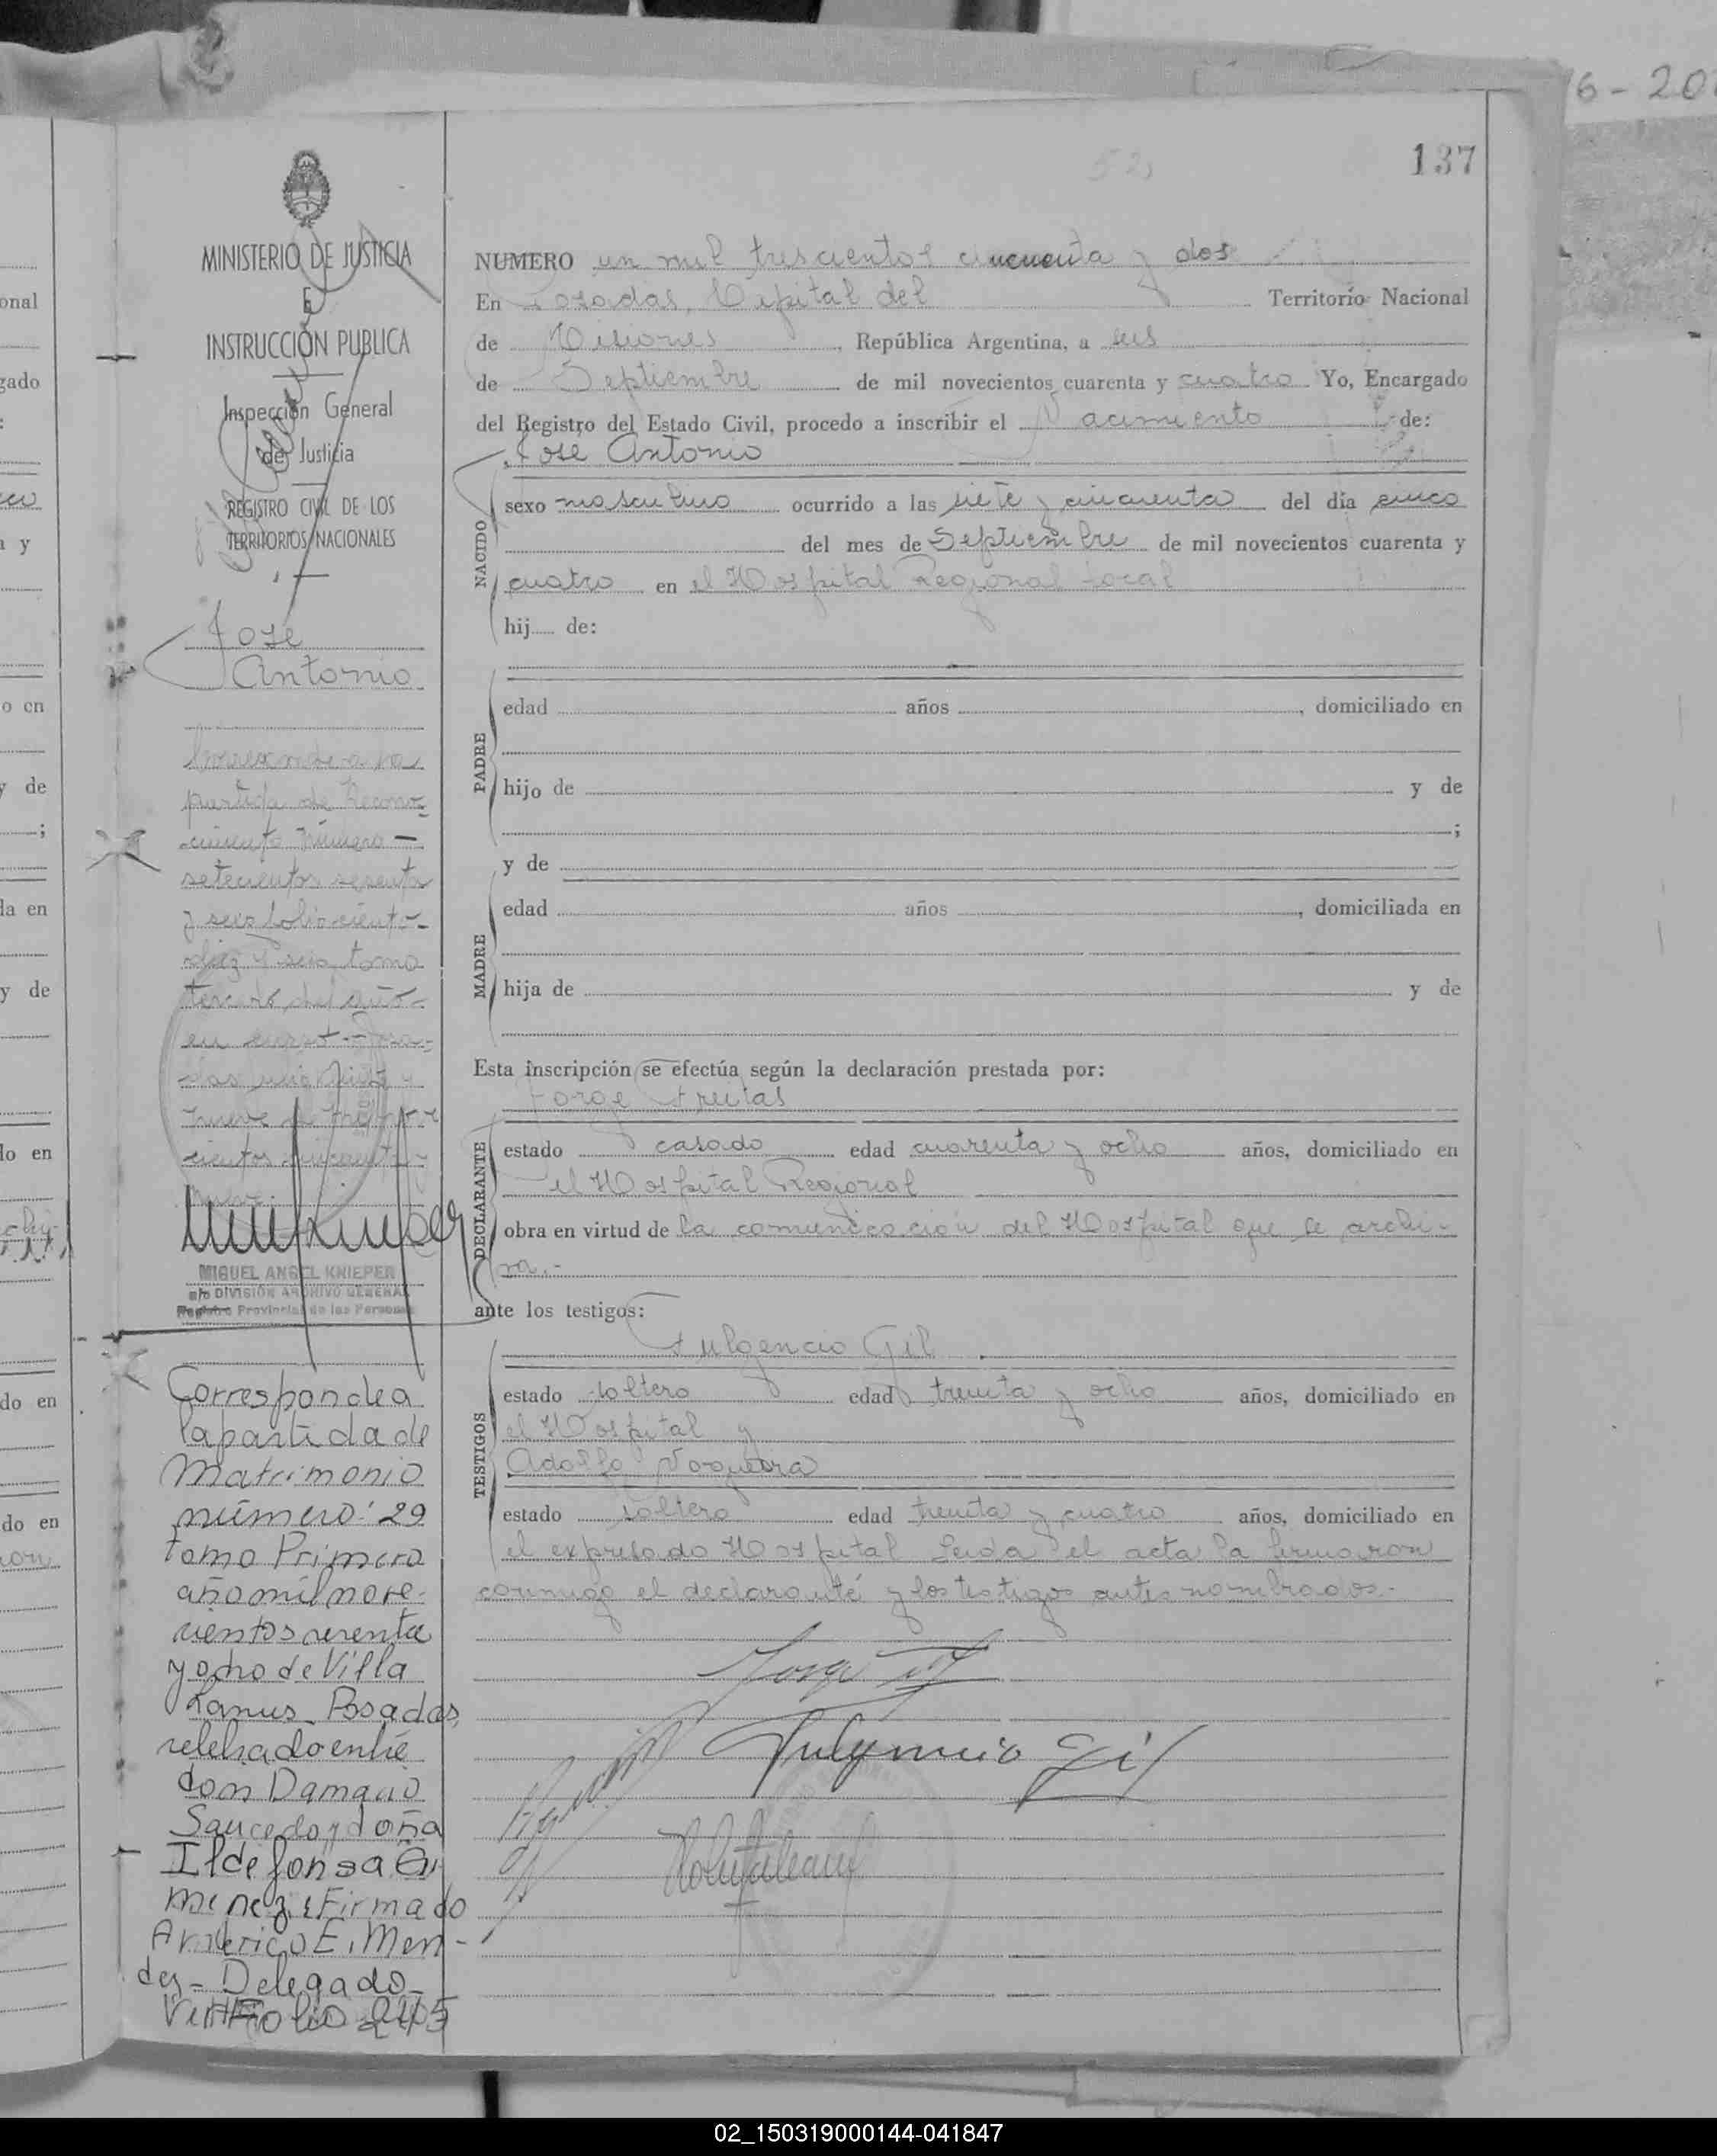 6-20
137
52
MINISTERIO DE JUSTICIA
E
INSTRUCCIÓN PUBLICA
Inspección General
de Justicia
REGISTRO CIVIL DE LOS
TERRITORIOS NACIONALES
Jose
Antonio
partida de Recono=
cimiento número —
setecientos sesenta
y seis folio ciento-
diez y seis tomo
del año-
en curso
nueve de mil nove
cientos cincuenta y
MIGUEL ANGEL KNIEPER
a/c DIVISIÓN ARCHIVO GENERAL
Registro Provincial de las Personas
Corresponde a
la partida de
Matrimonio
número: 29
tomo Primero
año mil nove-
cientos
y ocho de Villa
Lanus Posadas,
celebrado entre
don Damacio
Saucedo y doña
Ildefonsa Gi
menez: Firmado
Americo E. Men-
des - Delegado -
Folio 245
NUMERO un mil trescientos cincuenta y dos
En Posadas, Capital del Territorio Nacional
de Misiones, República Argentina, a seis
de Septiembre de mil novecientos cuarenta y cuatro Yo, Encargado
del Registro del Estado Civil, procedo a inscribir el Nacimiento de:
José Antonio
NACIDO
sexo masculino ocurrido a las siete y cincuenta del día cinco
del mes de Septiembre de mil novecientos cuarenta y
cuatro en el Hospital Regional local
hij..... de:
PADRE
edad años , domiciliado en
hijo de y de
;
y de
MADRE
edad años , domiciliada en
hija de y de
Esta inscripción se efectúa según la declaración prestada por:
Jorge Freitas
DECLARANTE
estado casado edad cuarenta y ocho años, domiciliado en
el Hospital Regional
obra en virtud de la comunicación del Hospital que se archi-
va.-
ante los testigos:
Fulgencio Gil
TESTIGOS
estado soltero edad treinta y ocho años, domiciliado en
el Hospital y
Adolfo Nogueira
estado soltero edad treinta y cuatro años, domiciliado en
el expresado Hospital Leida el acta la firmaron
conmigo el declarante y los testigos antes nombrados.-
Jorge
Fulgencio Gil
02_150319000144-041847